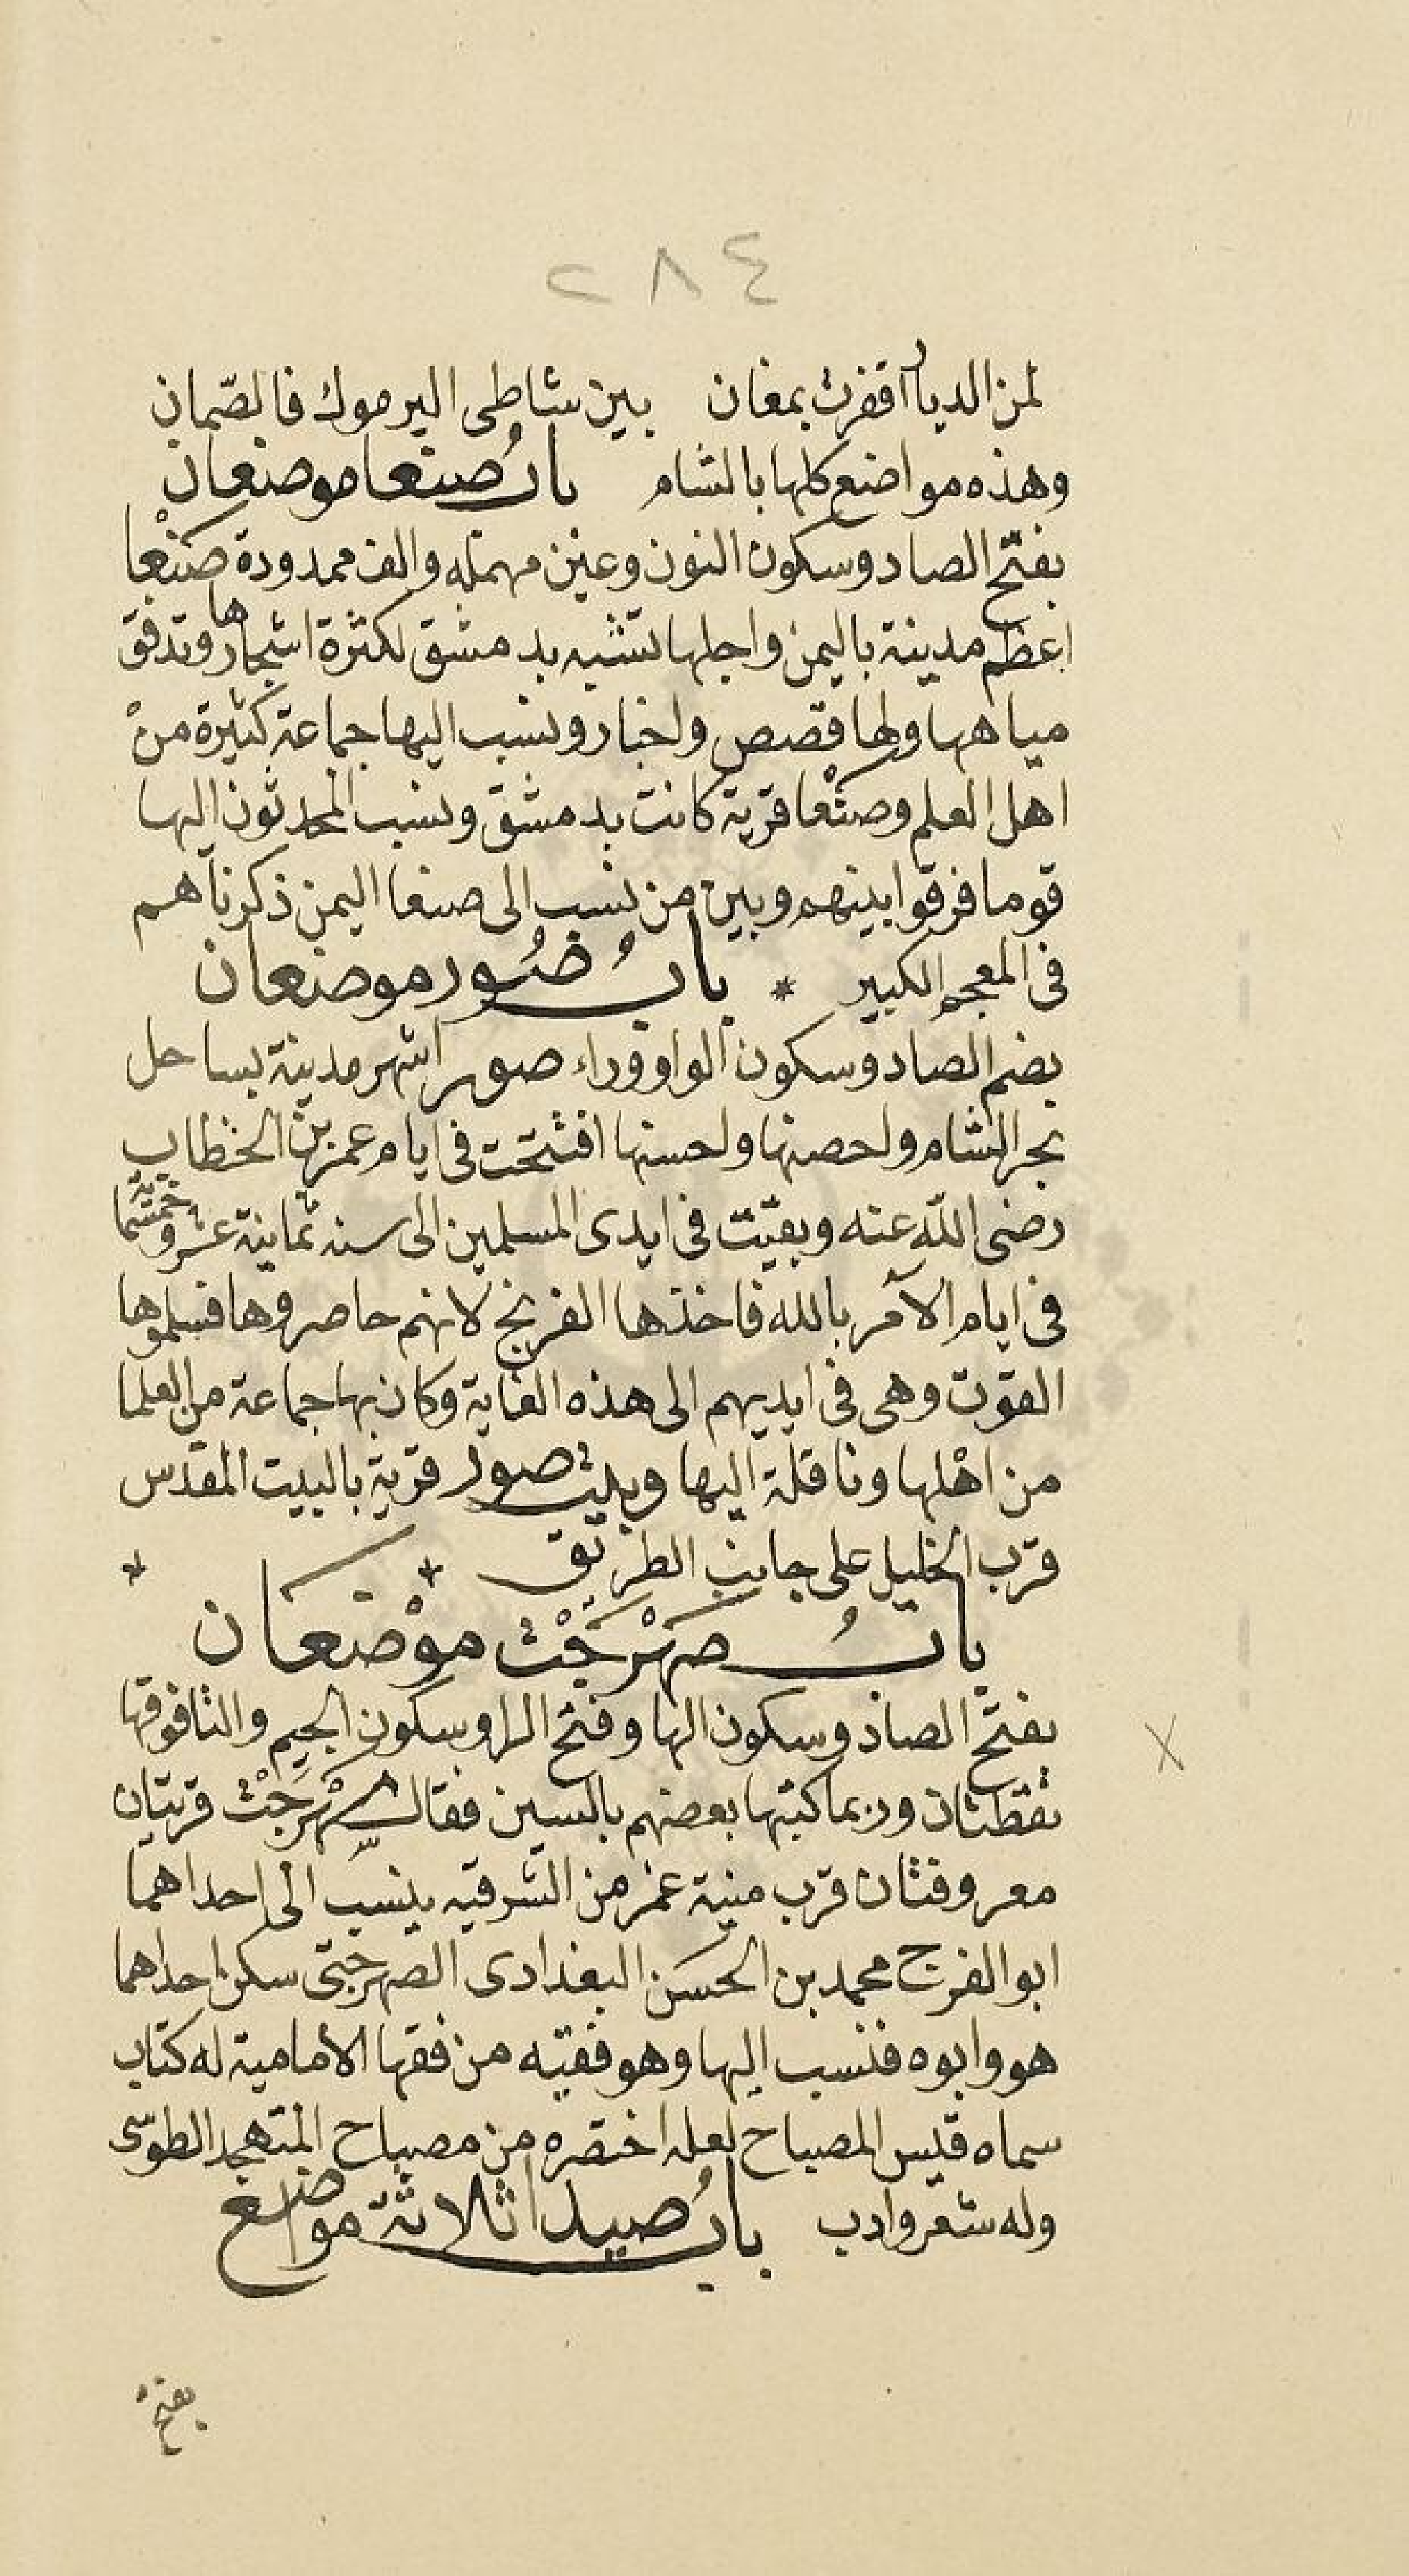 ٢٨٤
لمن الديار اقفرت بمغان بين شاطى اليرموك فالصّمان
وهذه مواضع كلها بالشام بابُ صنعا موضعان
بفتح الصاد وسكون النون وعين مهمله والف ممدودة صَنْعا
اعظم مدينة باليمن واجلها تشبه بدمشق لكثرة اشجارها وتدفق
مياهها ولها قصص واخبار ونسب اليها جماعة كثيرة من
اهل العلم وصنْعا قرية كانت بدمشق ونسب المحدثون اليها
قوما فرقوا بينهم وبين من نسب الى صنعا اليمن ذكرناهم
فى المعجم الكبير * بابُ صُور موضعان
بضم الصاد وسكون الواو وراء صور اشهر مدينة بساحل
بحر الشام ولحصنها ولحسنها افتتحت فى ايام عمر بن الخطاب
رضى اللّه عنه وبقيت فى ايدى المسلمين الى سنه ثمانية عشر وخمسمايه
فى ايام الآمر بالله فاخذها الفرنج لانهم حاصروها فسلموها
القوت وهى فى ايديهم الى هذه الغاية وكان بها جماعة من العلما
من اهلها وناقلة اليها وبيت صور قرية بالبيت المقدس
قرب الخليل على جانب الطريق * *
بابُ صَهْرَجْت موْضعان
بفتح الصاد وسكون الها وفتح الرا وسكون الجيم والتا فوقها
نقطتان وربما كتبها بعضهم بالسين فقال سَهْرَجْت قريتان
معروفتان قرب منية غمر من الشرقيه ينسب الى احداهما
ابو الفرج محمد بن الحسن البغدادى الصهرجتى سكن احداهما
هو وابوه فنسب اليها وهو فقيه من فقها الامامية له كتاب
سماه قبس المصباح لعله اختصره من مصباح المتهجد الطوسى
وله شعر وادب بابُ صيدا ثلاثة مواضع
بفتح